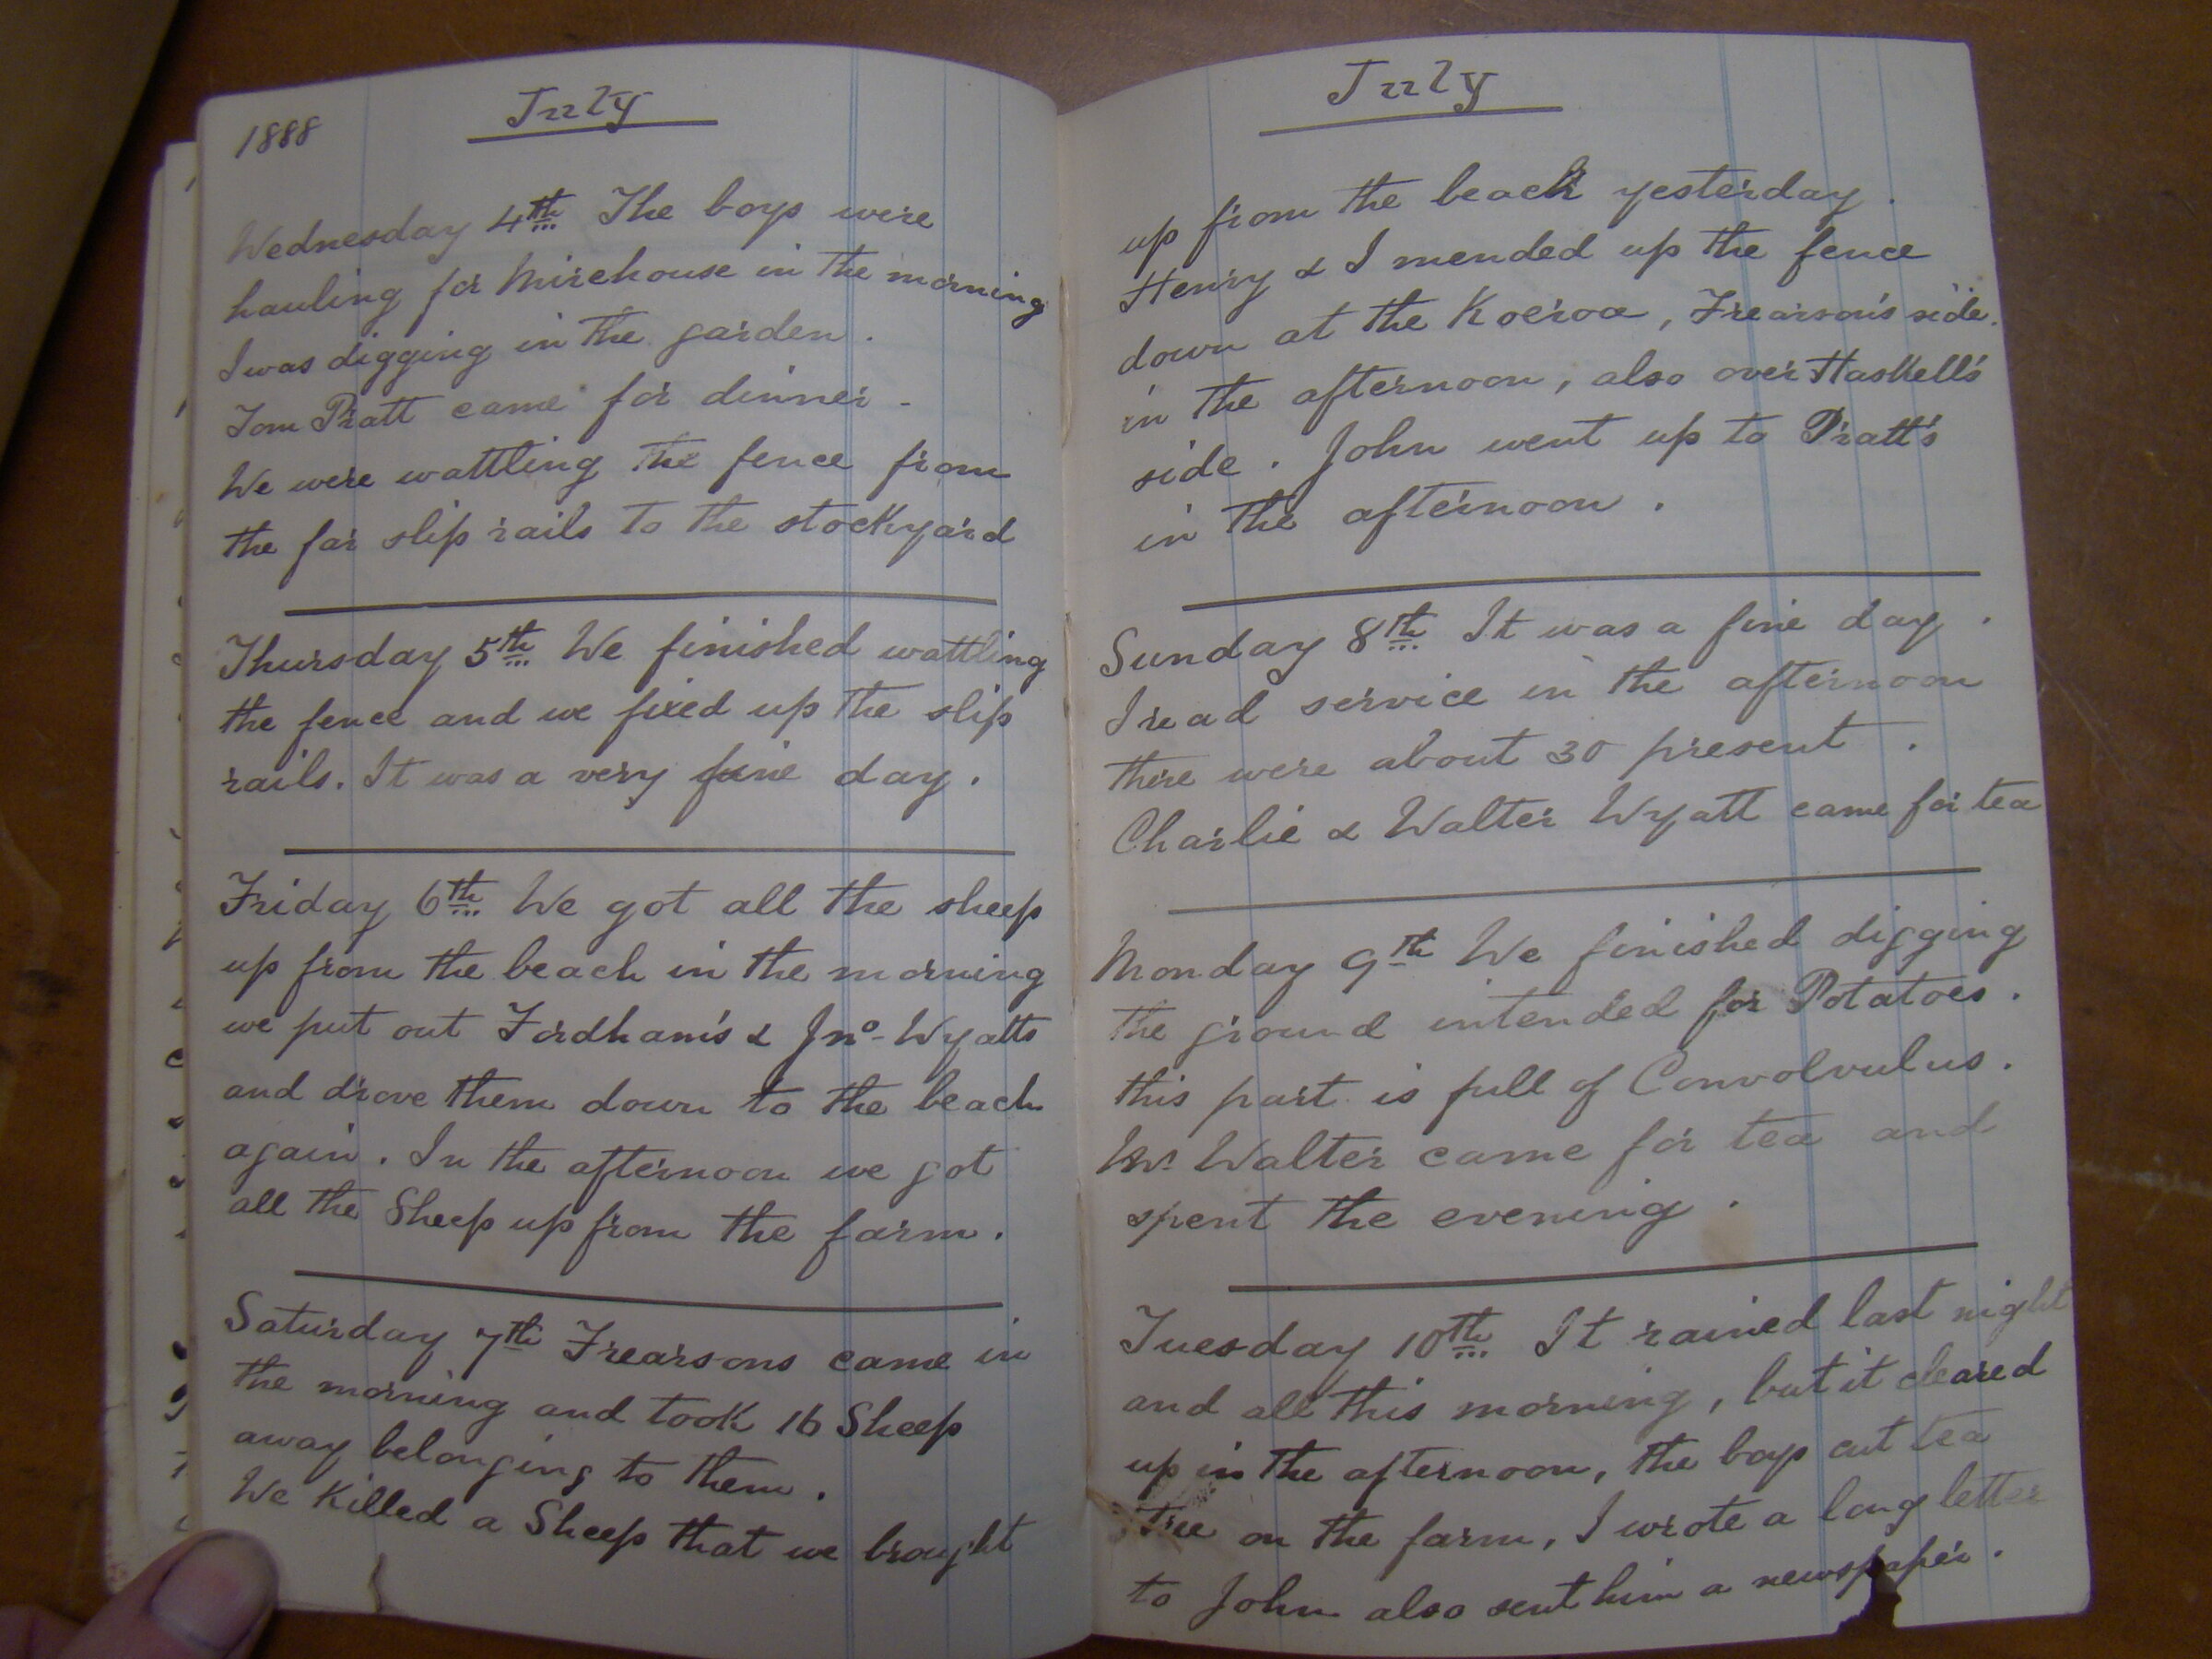 1888
July
Wednesday 4th The boys were
hauling for Mirehouse in the morning
I was digging in the garden.
Tom Pratt came for dinner -
We were wattling the fence from
the far slip rails to the stockyard
Thursday 5th We finished wattling
the fence and we fixed up the slip
rails. It was a very fine day.
Friday 6th We got all the sheep
up from the beach in the morning
we put out Fordham's & Jno- Wyatts
and drove them down to the beach
again. In the afternoon we got
all the Sheep up from the farm.
Saturday 7th Frearsons came in
the morning and took 16 Sheep
away belonging to them.
We killed a Sheep that we brought
July
up from the beach yesterday.
Henry & I mended up the fence
down at the Koeroa, Frearson's side.
in the afternoon, also over Haskell's
side. John went up to Pratt's
in the afternoon.
Sunday 8th It was a fine day.
I read service in the afternoon
there were about 30 present.
Charlie & Walter Wyatt came for tea
Monday 9th We finished digging
the ground intended for Potatoes.
this part is full of Convolvulus.
Mr Walter came for tea and
spent the evening.
Tuesday 10th It rained last night
and all this morning, but it cleared
up in the afternoon, the boys cut tea
tree on the farm, I wrote a long letter
to John also sent him a newspaper.